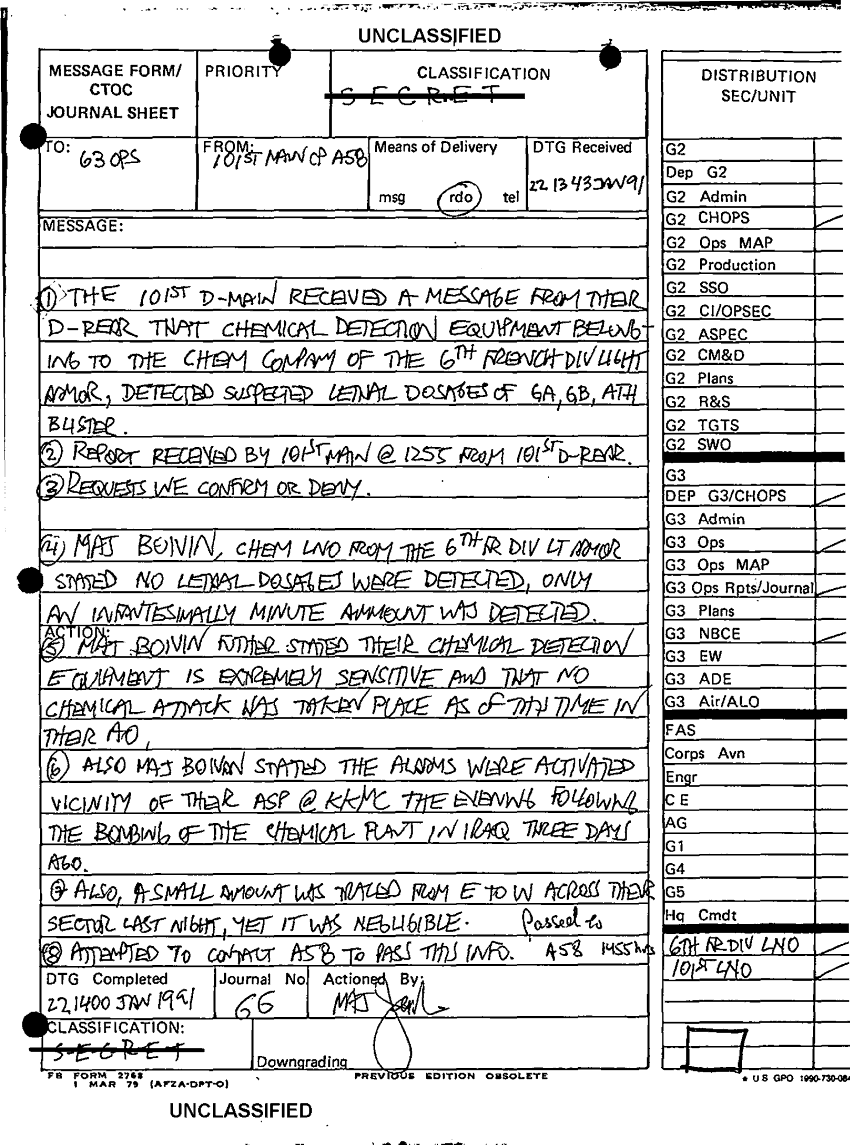 UNCLASSIFIED
MESSAGE FORM/
CTOC
JOURNAL SHEET
PRIORITY
CLASSIFICATION
SECRET
TO:
G3 OPS
FROM:
101ST MAIN CP A58
Means of Delivery
msg rdo tel
DTG Received
221343JAN91
MESSAGE:
① THE 101ST D-MAIN RECEIVED A MESSAGE FROM THEIR
D-REAR THAT CHEMICAL DETECTION EQUIPMENT BELONG-
ING TO THE CHEM COMPANY OF THE 6TH FRENCH DIV LIGHT
ARMOR, DETECTED SUSPECTED LETHAL DOSAGES OF GA, GB, ATH
BLISTER.
② REPORT RECEIVED BY 101ST MAIN @ 1255 FROM 101ST D-REAR.
③ REQUESTS WE CONFIRM OR DENY.
④ MAJ BOIVIN, CHEM LNO FROM THE 6TH FR DIV LT ARMOR
STATED NO LETHAL DOSAGES WERE DETECTED, ONLY
AN INFANTESIMALLY MINUTE AMMOUNT WAS DETECTED.
ACTION:
⑤ MAJ BOIVIN FUTHER STATED THEIR CHEMICAL DETECTION
EQUIPMENT IS EXTREMELY SENSITIVE AND THAT NO
CHEMICAL ATTACK HAS TAKEN PLACE AS OF THIS TIME IN
THEIR AO.
⑥ ALSO MAJ BOIVIN STATED THE ALARMS WERE ACTIVATED
VICINITY OF THEIR ASP @ KKMC THE EVENING FOLLOWING
THE BOMBING OF THE CHEMICAL PLANT IN IRAQ THREE DAYS
AGO.
⑦ ALSO, A SMALL AMOUNT WAS TRACED FROM E TO W ACROSS THEIR
SECTOR LAST NIGHT, YET IT WAS NEGLIGIBLE. Passed to
⑧ ATTEMPTED TO CONTACT A58 TO PASS THIS INFO. A58 1455 hrs
DTG Completed
221400 JAN 1991
Journal No.
66
Actioned By:
MAJ
CLASSIFICATION:
SECRET
Downgrading
FB FORM 2768
1 MAR 79 (AFZA-DPT-O)
PREVIOUS EDITION OBSOLETE
UNCLASSIFIED
DISTRIBUTION
SEC/UNIT
G2
Dep G2
G2 Admin
G2 CHOPS
G2 Ops MAP
G2 Production
G2 SSO
G2 CI/OPSEC
G2 ASPEC
G2 CM&D
G2 Plans
G2 R&S
G2 TGTS
G2 SWO
G3
DEP G3/CHOPS
G3 Admin
G3 Ops
G3 Ops MAP
G3 Ops Rpts/Journal
G3 Plans
G3 NBCE
G3 EW
G3 ADE
G3 Air/ALO
FAS
Corps Avn
Engr
C E
AG
G1
G4
G5
Hq Cmdt
6TH FR DIV LNO
101ST LNO
★ U S GPO 1990-730-084